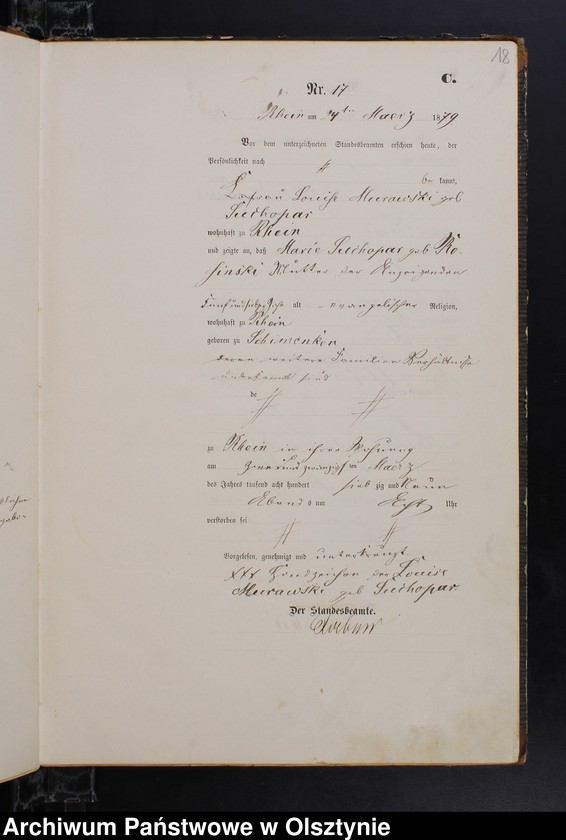 18
C.
Nr. 17
Rhein am 24ten Maerz 1879
Vor dem unterzeichneten Standesbeamten erschien heute, der
Persönlichkeit nach
be kannt,
Frau Louise Murawski geb
Suchopar
wohnhaft zu Rhein
und zeigte an, daß Marie Suchopar geb Ro-
sinski Mutter der Anzeigenden
alt evangelischer Religion,
wohnhaft zu Rhein
geboren zu Schimonken
deren weitere Familien Verhältnisse
unbekannt sind
de
zu Rhein in ihrer Wohnung
am zweiundzwanzigsten Maerz
des Jahres tausend acht hundert siebzig und Neun
Abends um Acht Uhr
verstorben sei
Vorgelesen, genehmigt und unterkreuzt
+++ Handzeichen der Louise
Murawski geb Suchopar.
Der Standesbeamte.
Archiwum Państwowe w Olsztynie